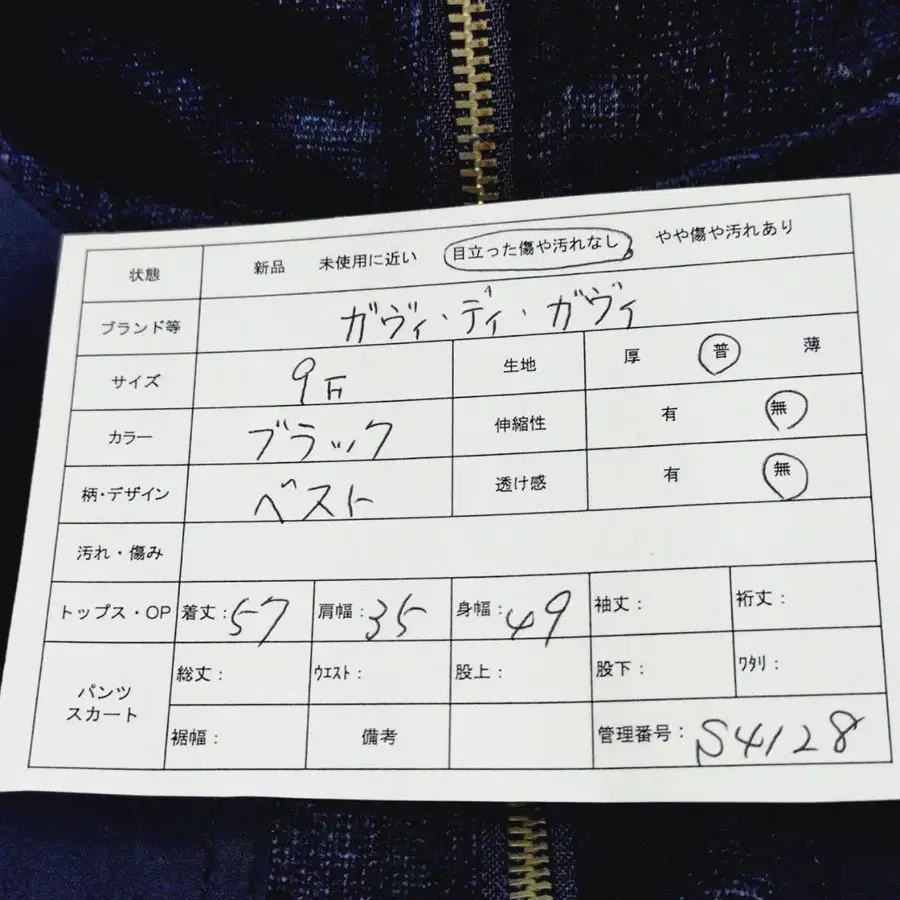 状態 新品 未使用に近い 目立った傷や汚れなし やや傷や汚れあり
ブランド等 ガヴィ・ディ・ガヴィ
サイズ 9号 生地 厚 普 薄
カラー ブラック 伸縮性 有 無
柄・デザイン ベスト 透け感 有 無
汚れ・傷み
トップス・OP 着丈：57 肩幅：35 身幅：49 袖丈： 裄丈：
パンツ スカート 総丈： ウエスト： 股上： 股下： ワタリ：
裾幅： 備考 管理番号：S4128